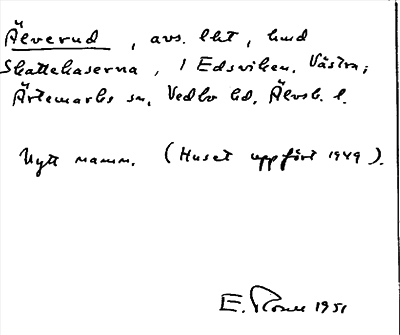 Älverud, avs. lht, hmd
Skattekaserna, i Edsviken, Västra;
Ärtemarks sn, Vedbo hd, Älvsb. l.
Nytt namn. (Huset uppfört 1949).
E. 1951